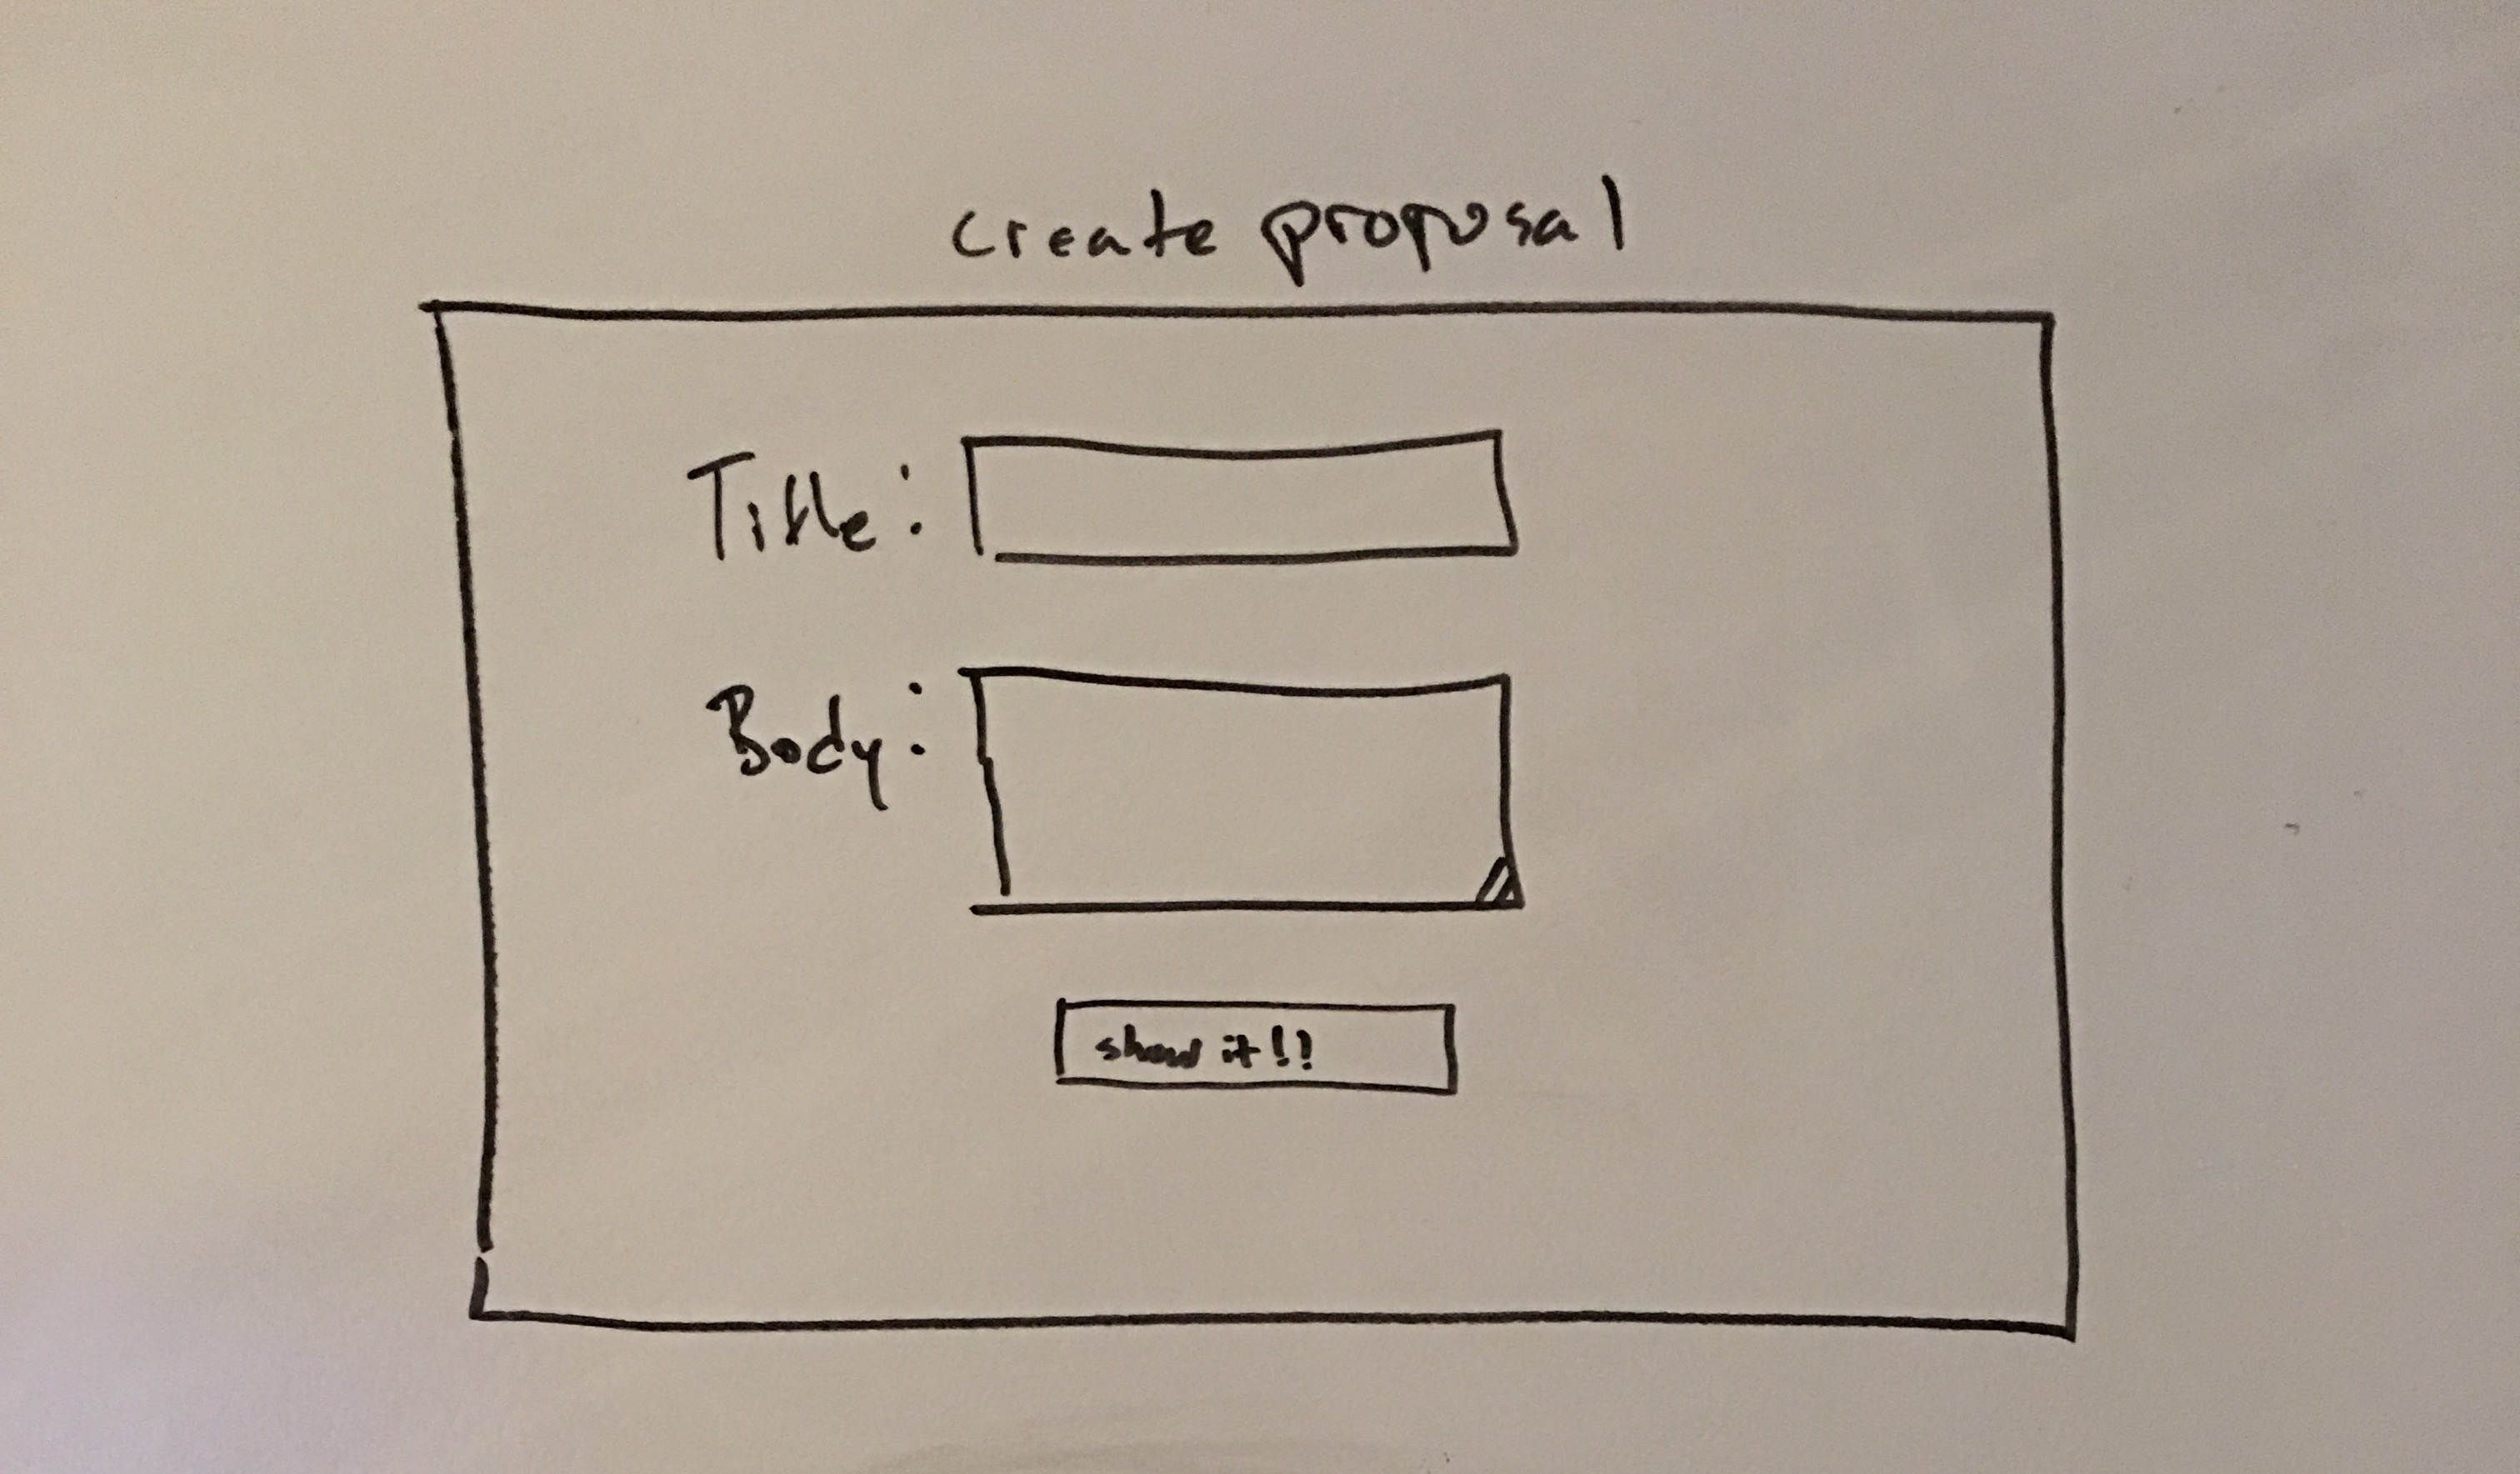 create proposal
Title:
Body:
show it!!